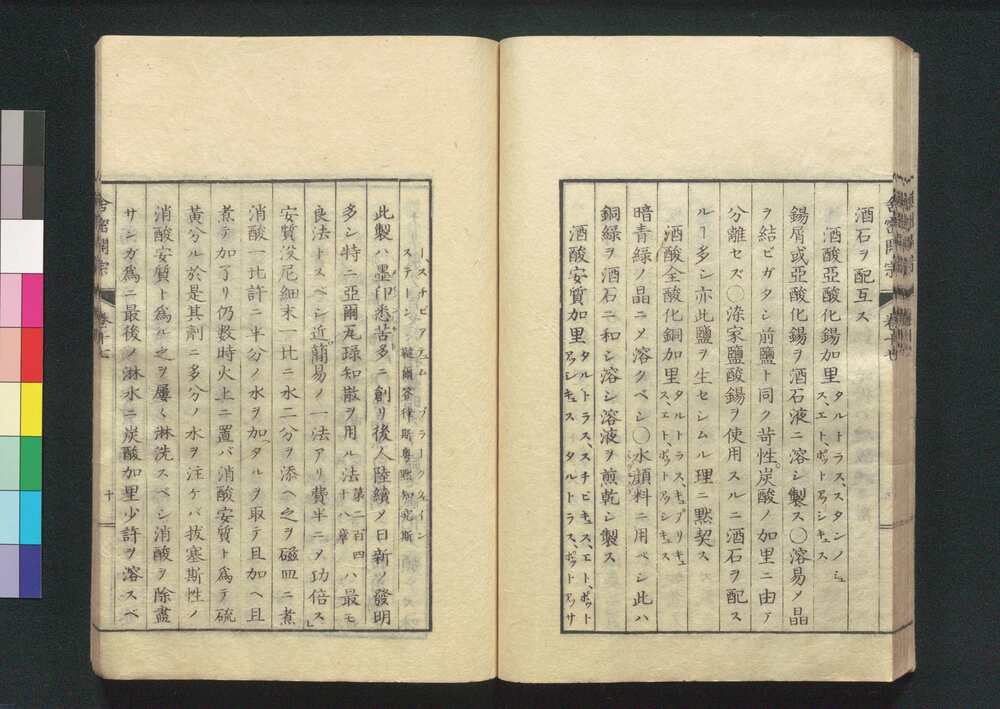 酒石ヲ配互ス
酒酸亞酸化錫加里 タルトラス、スタンノシュ
ス、エト、ポットアッシキュス
錫屑或亞酸化錫ヲ酒石液ニ溶シ製ス〇溶易ノ晶
ヲ結ビガタシ前鹽ト同ク苛性炭酸ノ加里ニ由テ
分離セズ〇染家鹽酸錫ヲ使用スルニ酒石ヲ配ス
ルー多シ亦此鹽ヲ生セシムル理ニ黙契ス
酒酸全酸化銅加里 タルトラス、キュプリキュ
ス、エト、ポットアッシキュス
暗青綠ノ晶ニメ溶クベシ〇水顔料ニ用ベシ此ハ
銅綠ヲ酒石ニ和シ溶シ溶液ヲ煎乾シ製ス
酒酸安質加里 タルトラス、スチビキュス、エト、ポット
アッシキュス タルトラス、ポットアッサ
ースチビアチュム ブラークウェイン
ステーン
此製ハ墨印悉苦多ニ創リ後人陸續メ日新ノ發明
多シ特ニ亞爾瓦碌知散ヲ用ル法 第二百四
十八章 ハ最モ
良法トスベシ近簡易ノ一法アリ費半ニメ功倍ス」
安質沒尼細末一比ニ水二分ヲ添ヘ之ヲ磁皿ニ煮
消酸一比許ニ半分ノ水ヲ加ヅルヲ取テ且加ヘ且
煮テ加了リ仍數時火上ニ置バ消酸安質ト爲テ硫
黃分ル於是其劑ニ多分ノ水ヲ注ケバ拔塞斯性ノ
消酸安質ト爲ル之ヲ屢〻淋洗スベシ消酸ヲ除盡
サンガ爲ニ最後ノ淋水ニ炭酸加里少許ヲ溶スベ
舎密開宗 卷十七
十